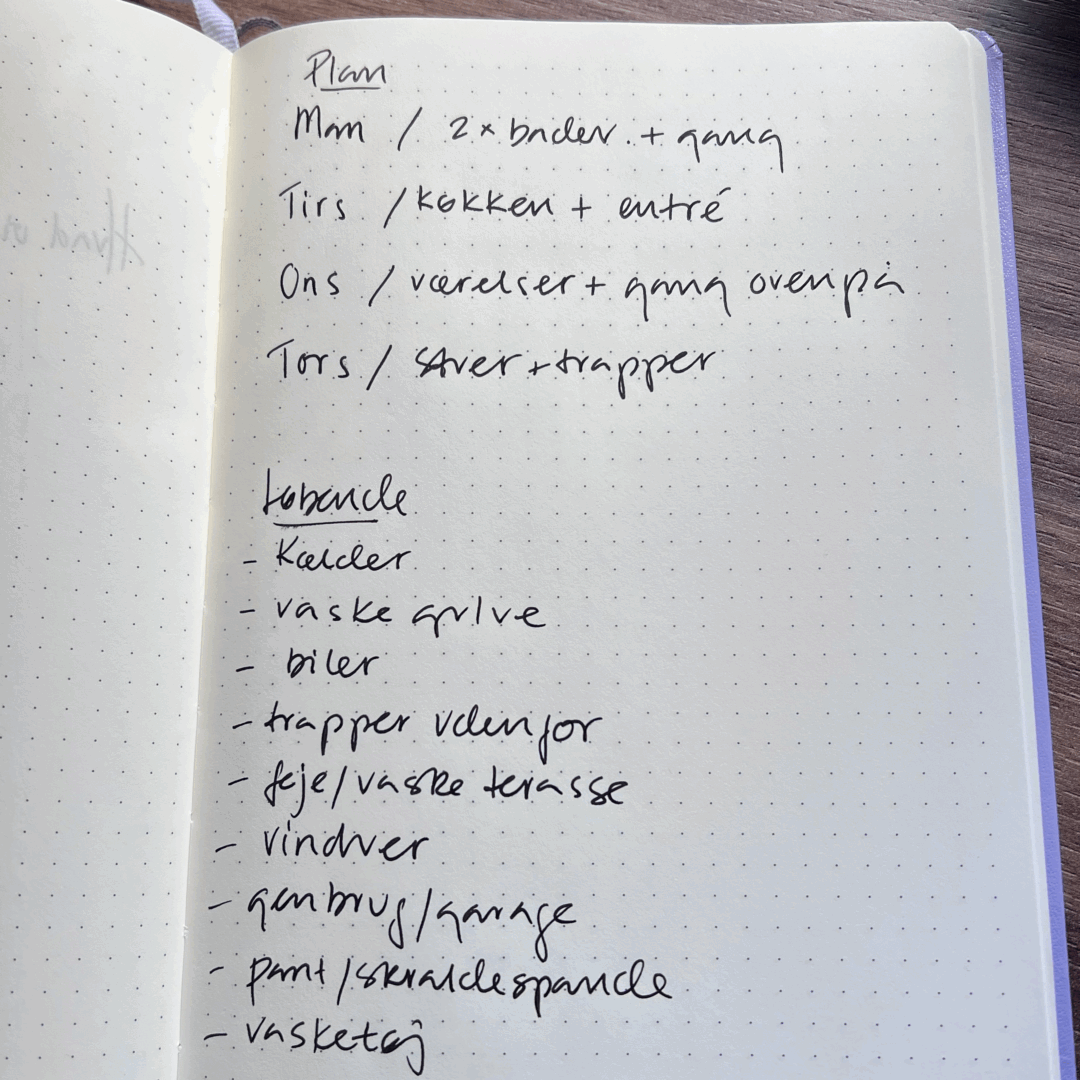 Plan
Man / 2 x bader. + gang
Tirs / køkken + entré
Ons / værelser + gang ovenpå
Tors / stuer + trapper
Løbende
- Kælder
- vaske gulve
- biler
- trapper udenfor
- feje/vaske terasse
- vinduer
- genbrug/garage
- pant/skraldespande
- vasketøj